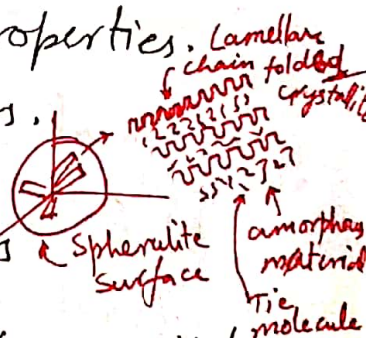 roperties.
Lamellar
chain folded
crystallit
s.
s
Spherulite
surface
amorphous
material
Tie
molecule